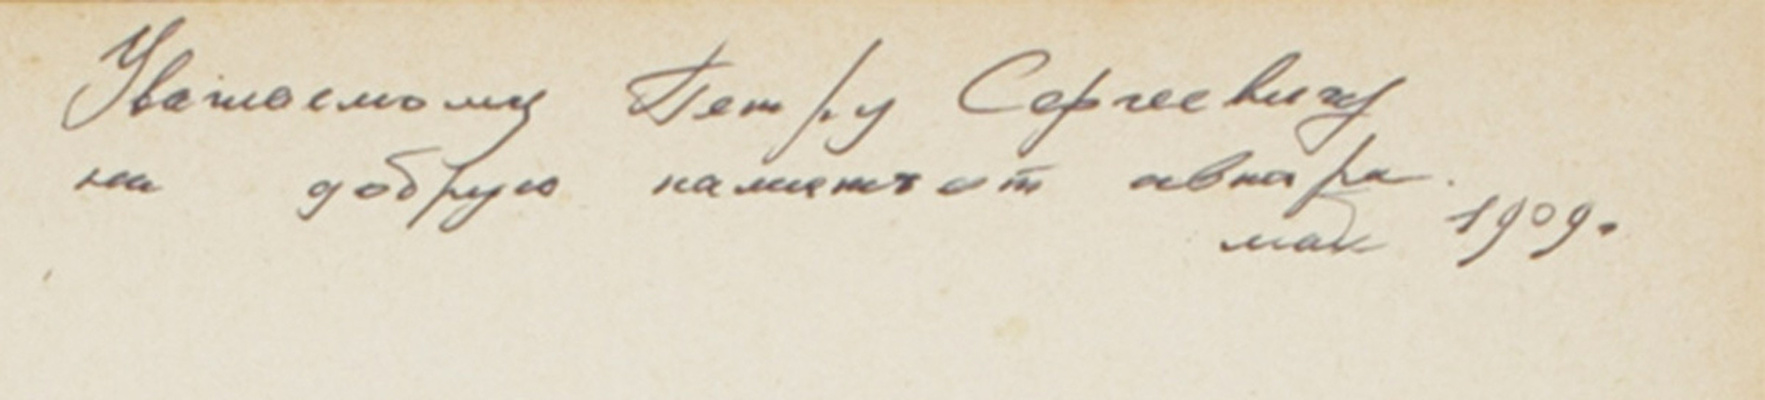 Уважаемому Петру Сергеевичу
на добрую память от автора.
май 1909.